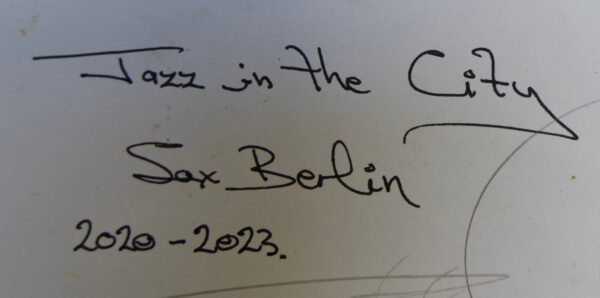 Jazz in the City
Sax Berlin
2020-2023.